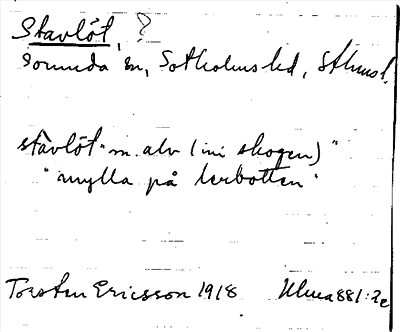 Stavlöt, ?
Sorunda sn, Sotholms hd, Sthms l.
stavlöt "m. alv (i ni skogen)"
"mylla på lerbotten"
Torsten Ericsson 1918 Ulma 881:2c